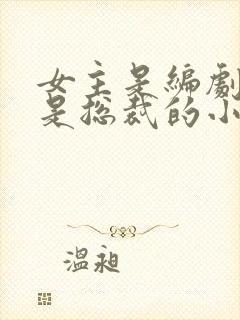 女主是編劇
是总裁的小
溫昶